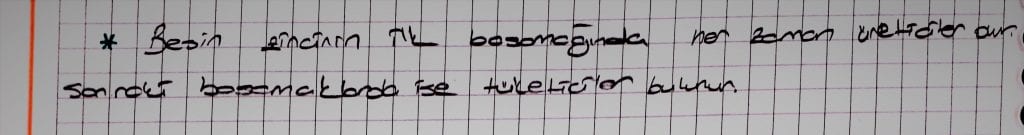 * Besin zincirinin ilk basamağında her zaman üreticiler olur.
Sonraki basamaklarda ise tüketiciler bulunur.